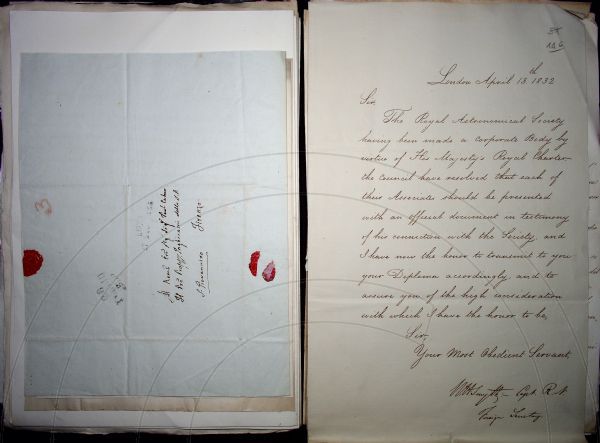 Firenze
London April 13.th 1832
Sir,
The Royal Astronomical Society
having been made a Corporate Body by
virtue of His Majesty's Royal Charter
the Council have resolved that each of
their Associates should be presented
with an official document in testimony
of his connection with the Society, and
I have now the honor to transmit to you
your Diploma accordingly, and to
assure you of the high consideration
with which I have the honor to be,
Sir,
Your Most Obedient Servant,
WHSmyth - Capt. R.N.
Foreign Secretary